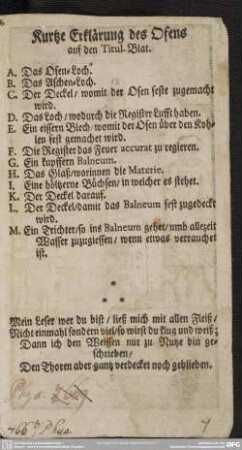 Kurtze Erklärung des Ofens
auf den Titul-Blat.
A. Das Ofen-Loch.
B. Das Aschen-Loch.
C. Der Deckel/ womit der Ofen feste zugemacht
wird.
D. Das Loch/ wodurch die Register Lufft haben.
E. Ein eissern Blech/ womit der Ofen über den Koh-
len fest gemachet wird.
F. Die Register das Feuer accurat zu regieren.
G. Ein kupffern Balneum.
H. Das Glaß/ worinnen die Materie.
I. Eine höltzerne Büchsen/ in welcher es stehet.
K. Der Deckel darauf.
L. Der Deckel/ damit das Balneum fest zugedeckt
wird.
M. Ein Trichter/ so ins Balneum gehet/ umb allezeit
Wasser zuzugiessen/ wenn etwas verrauchet
ist.
Mein Leser wer du bist/ ließ mich mit allen Fleiß/
Nicht einmahl sondern viel/ so wirst du klug und weiß;
Dann ich den Weisen nur zu Nutze bin ge-
schrieben/
Den Thoren aber gantz verdecket noch geblieben.